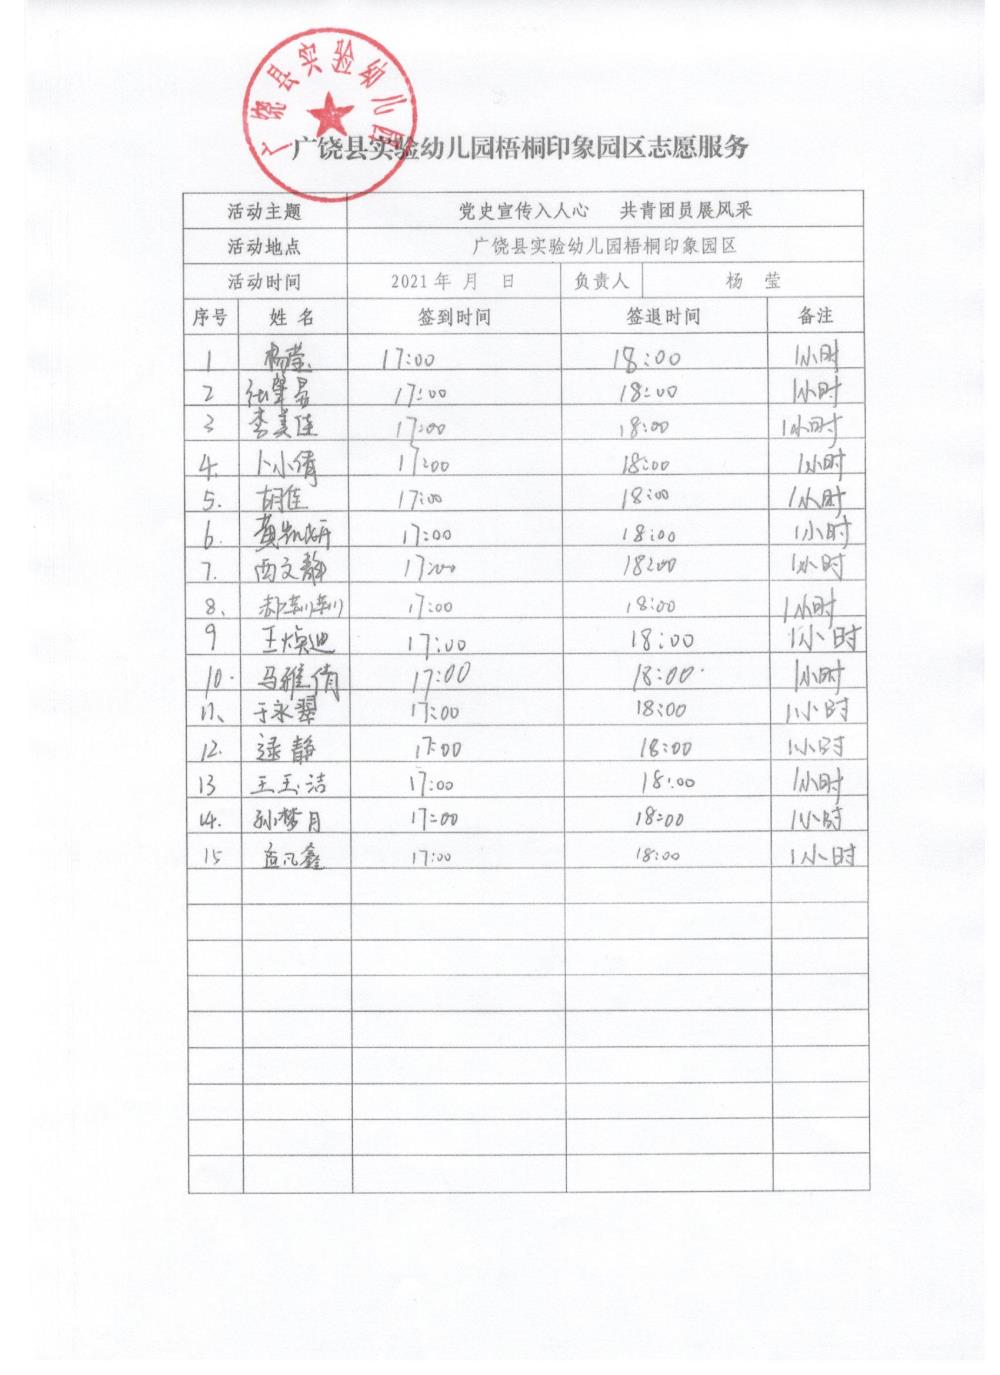 广饶县实验幼儿园
广饶县实验幼儿园梧桐印象园区志愿服务
活动主题 党史宣传入人心 共青团员展风采
活动地点 广饶县实验幼儿园梧桐印象园区
活动时间 2021年 月 日 负责人 杨 莹
序号 姓 名 签到时间 签退时间 备注
1 杨莹 17:00 18:00 1小时
2 17:00 18:00 1小时
3 李美佳 17:00 18:00 1小时
4. 卜小倩 17:00 18:00 1小时
5. 胡佳 17:00 18:00 1小时
6. 黄凯妍 17:00 18:00 1小时
7. 西文静 17:00 18:00 1小时
8、 17:00 18:00 1小时
9 王焕迪 17:00 18:00 1小时
10. 马雅倩 17:00 18:00. 1小时
11、 于永翠 17:00 18:00 1小时
12. 逯静 17:00 18:00 1小时
13 王玉洁 17:00 18:00 1小时
14. 孙梦月 17:00 18:00 1小时
15 孟凡鑫 17:00 18:00 1小时